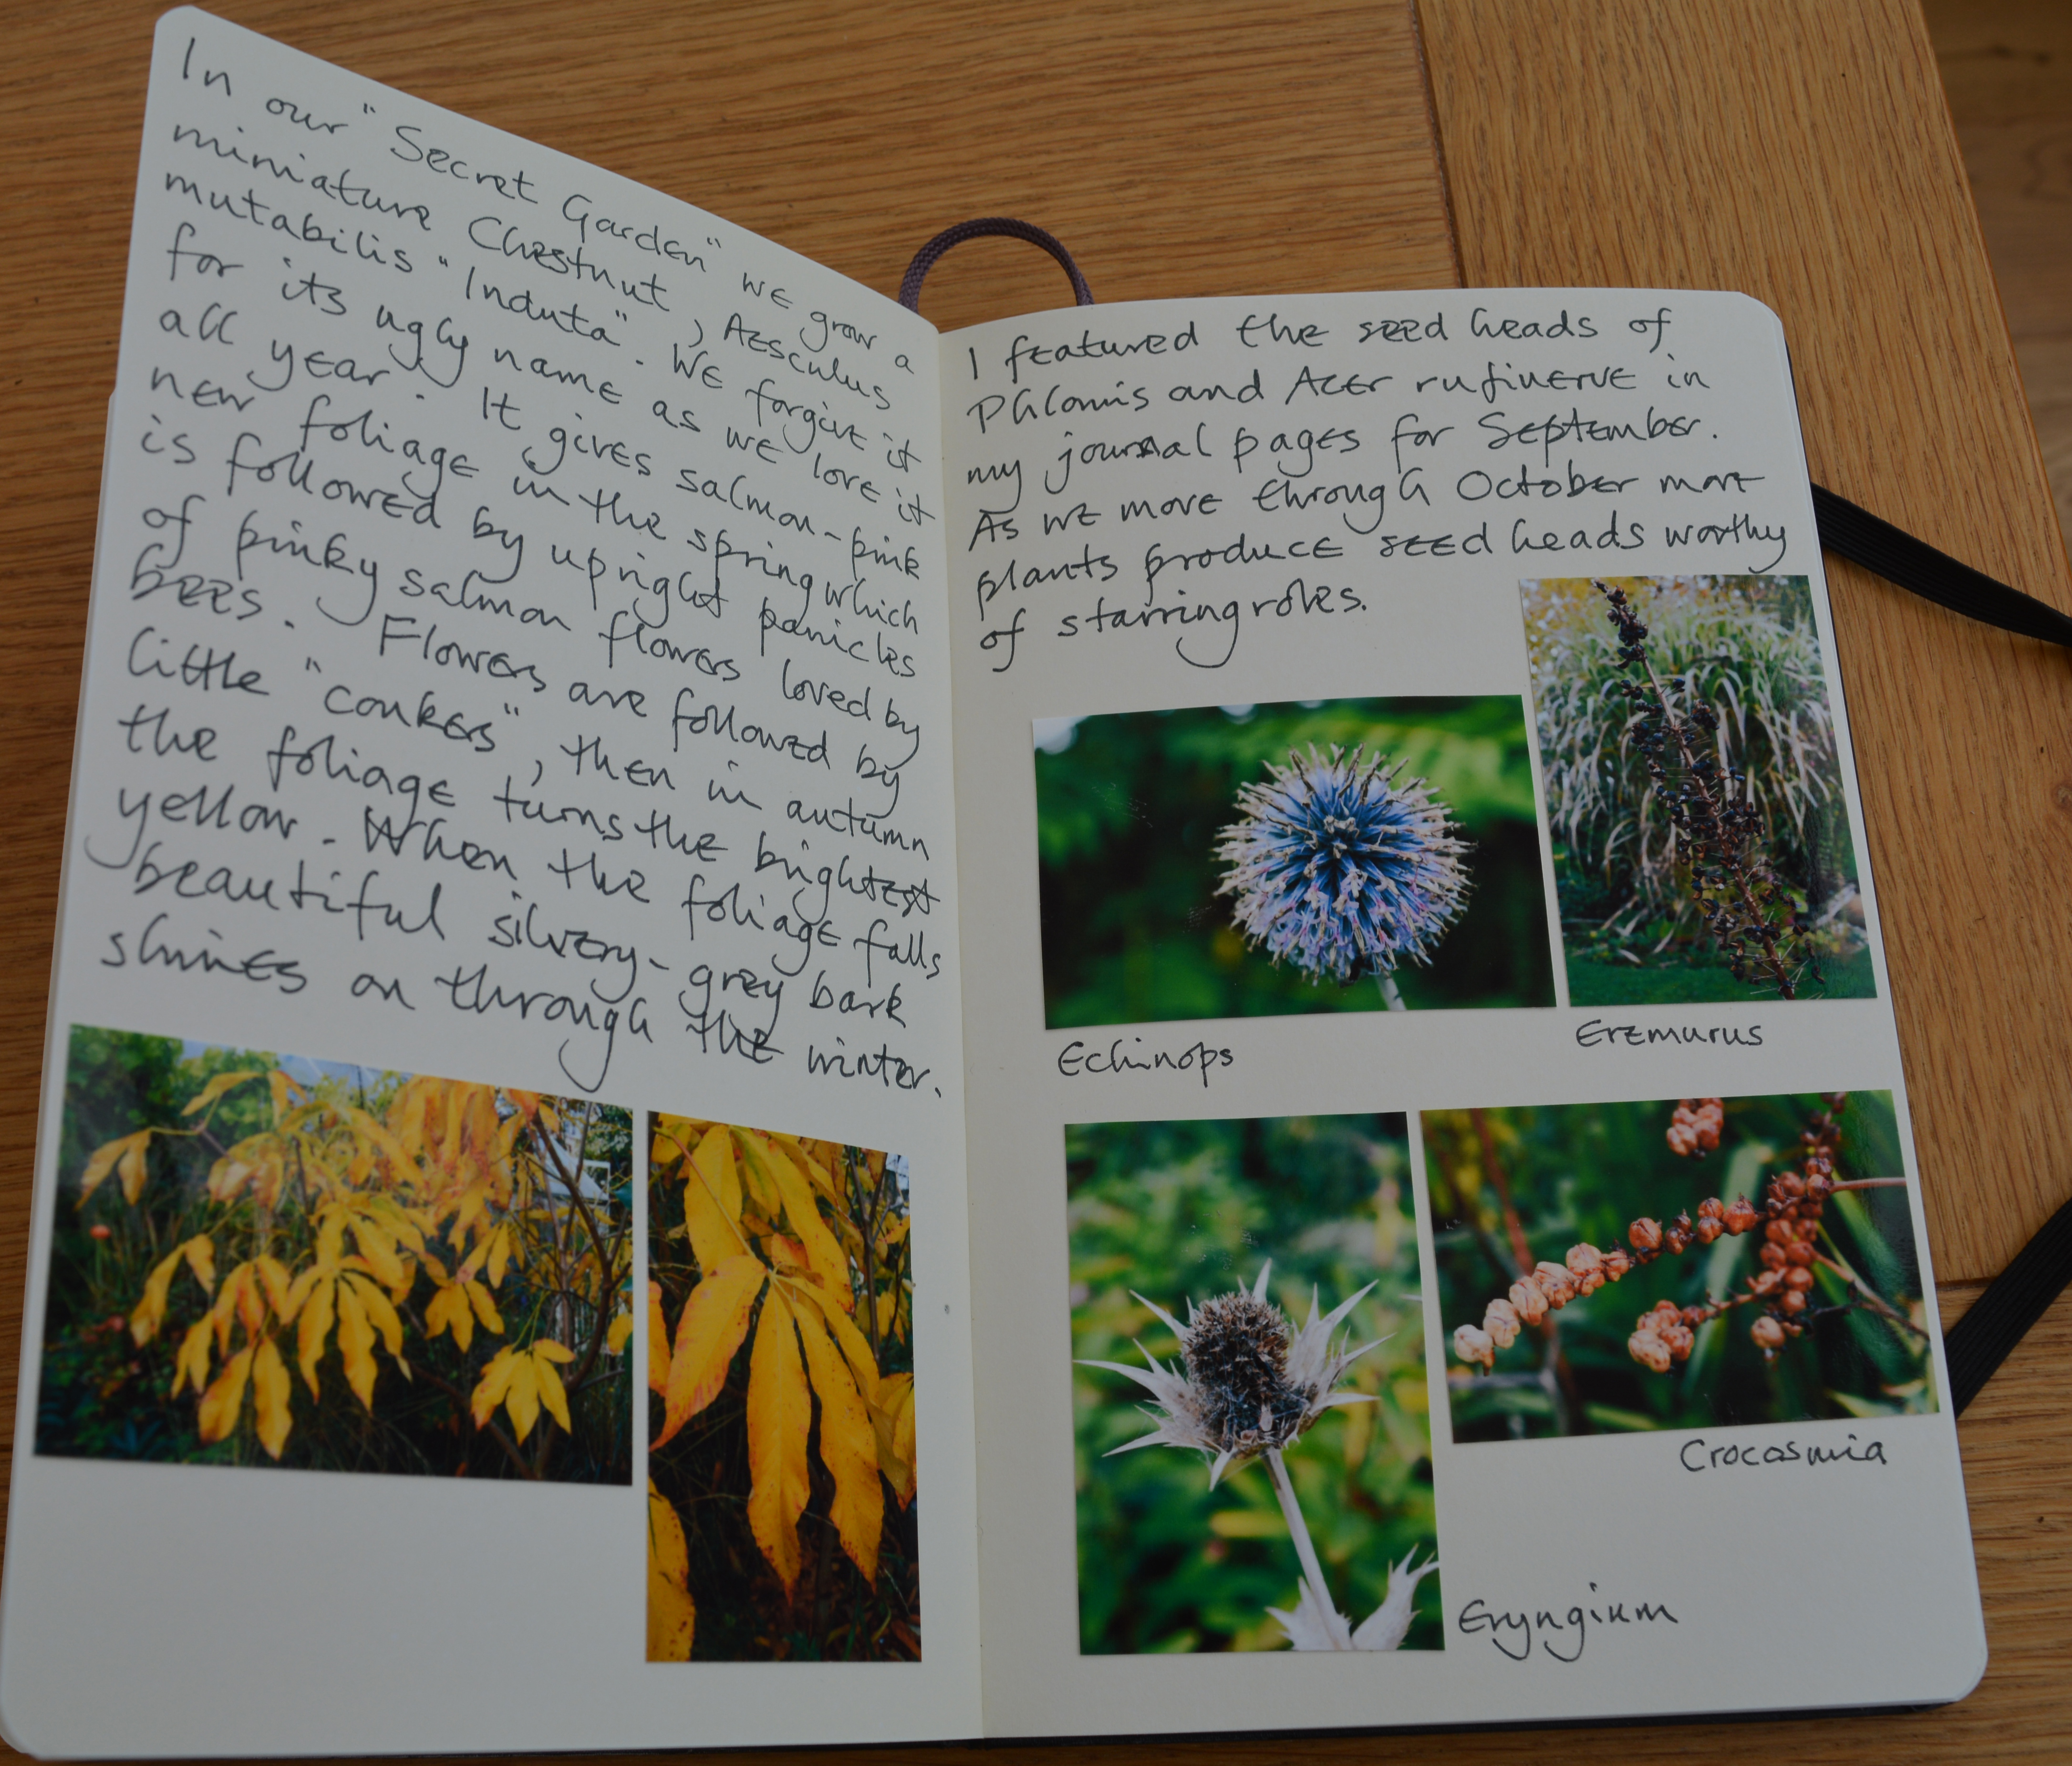 In our "Secret Garden" we grow a
miniature Chestnut, Aesculus
mutabilis "Induta". We forgive it
for its ugly name as we love it
all year. It gives salmon-pink
new foliage in the spring which
is followed by upright panicles
of pinky salmon flowers loved by
bees. Flowers are followed by
little "conkers", then in autumn
the foliage turns the brightest
yellow. When the foliage falls
beautiful silvery-grey bark
shines on through the winter.
I featured the seed heads of
Phlomis and Acer rufinerve in
my journal pages for September.
As we move through October more
plants produce seed heads worthy
of starring roles.
Echinops
Eremurus
Crocosmia
Eryngium